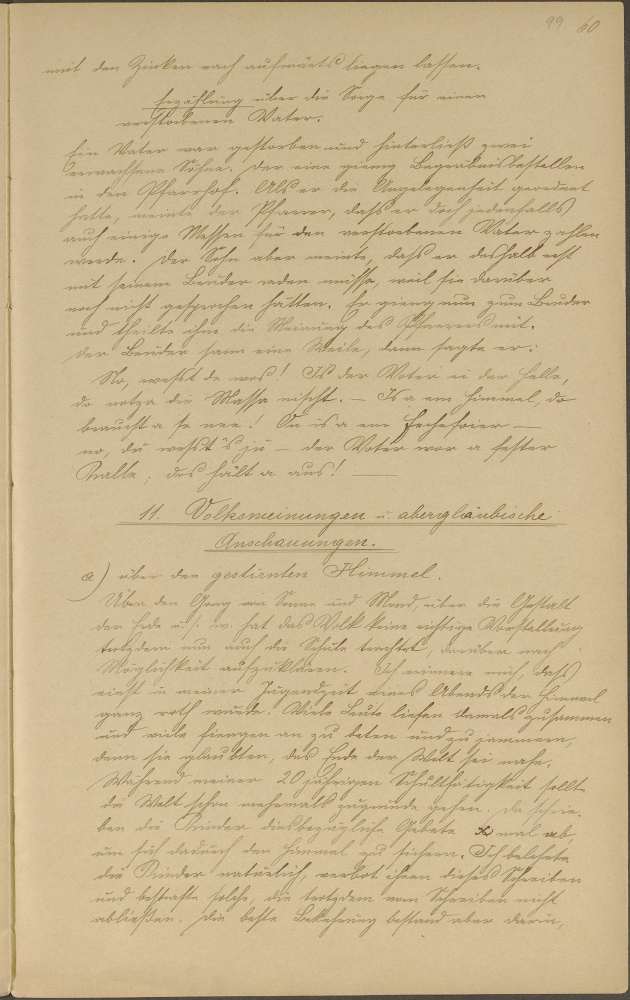 99 60
mit den Zinken nach aufwärts liegen lassen.
Erzählung über die Sorge für einen
verstorbenen Vater.
Ein Vater war gestorben und hinterließ zwei
erwachsene Söhne. Der eine gieng Begräbnisbestellen
in den Pfarrhof. Als er die Angelegenheit geordnet
hatte, meinte der Pfarrer, dass er doch jedenfalls
auch einige Messen für den verstorbenen Vater zahlen
werde. Der Sohn aber meinte, dass er deshalb erst
mit seinem Bruder reden müsse, weil sie darüber
noch nicht gesprochen hätten. Er gieng nun zum Bruder
und theilte ihm die Meinung des Pfarrers mit.
Der Bruder sann eine Weile, dann sagte er:
No, weßt de wos! Is der Voter ei der Helle,
do notzn die Massa nischt. – Is a em Himmel, do
braucht a se nee! On is a em Fechefeier –
no, du weßt 's ju – der Voter wor a fester
Kalle; dos hält a aus! –
11. Volksmeinungen u. abergläubische
Anschauungen.
a) über den gestirnten Himmel.
Über den Gang von Sonne und Mond, über die Gestalt
der Erde u. s. w. hat das Volk keine richtige Vorstellung
trotzdem nun auch die Schule trachtet, darüber nach
Möglichkeit aufzuklären. Ich erinnere mich, dass
einst in meiner Jugendzeit eines Abends der Himmel
ganz roth wurde. Viele Leute liefen damals zusammen
und viele fiengen an zu beten und zu jammern,
denn sie glaubten, das Ende der Welt sei nahe.
Während meiner 20 jährigen Schulthätigkeit sollte
die Welt schon mehrmals zugrunde gehen. Da schrie-
ben die Kinder diesbezügliche Gebete x mal ab
um sich dadurch den Himmel zu sichern. Ich belehrte
die Kinder natürlich, verbot ihnen dieses Schreiben
und bestrafte solche, die trotzdem vom Schreiben nicht
abließen. Die beste Bekehrung bestand aber darin,